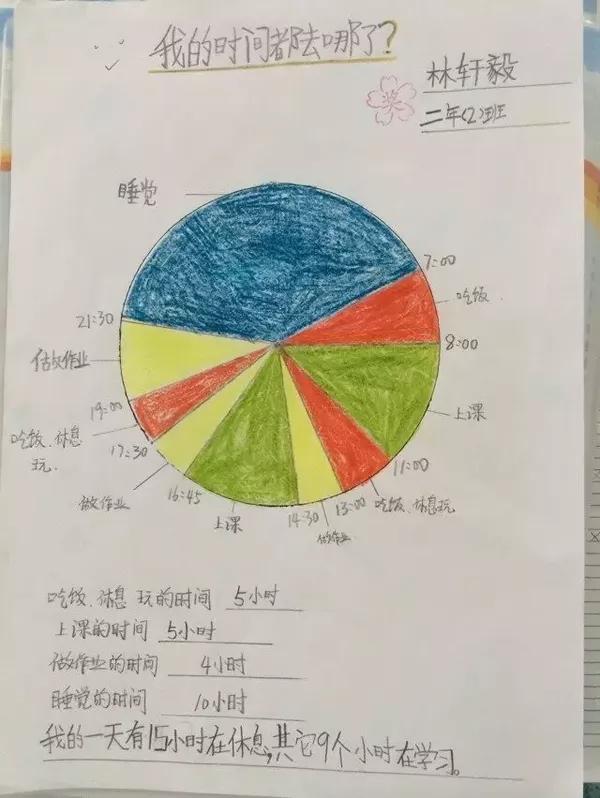 我的时间都去哪了？
林轩毅
奖
二年(2)班
睡觉
7:00
吃饭
21:30
8:00
做作业
19:00
上课
吃饭、休息
玩.
17:30
11:00
做作业
16:45
上课
14:30
13:00
吃饭、休息玩
做作业
吃饭、休息 玩的时间 5小时
上课的时间 5小时
做作业的时间 4小时
睡觉的时间 10小时
我的一天有15小时在休息,其它9个小时在学习。